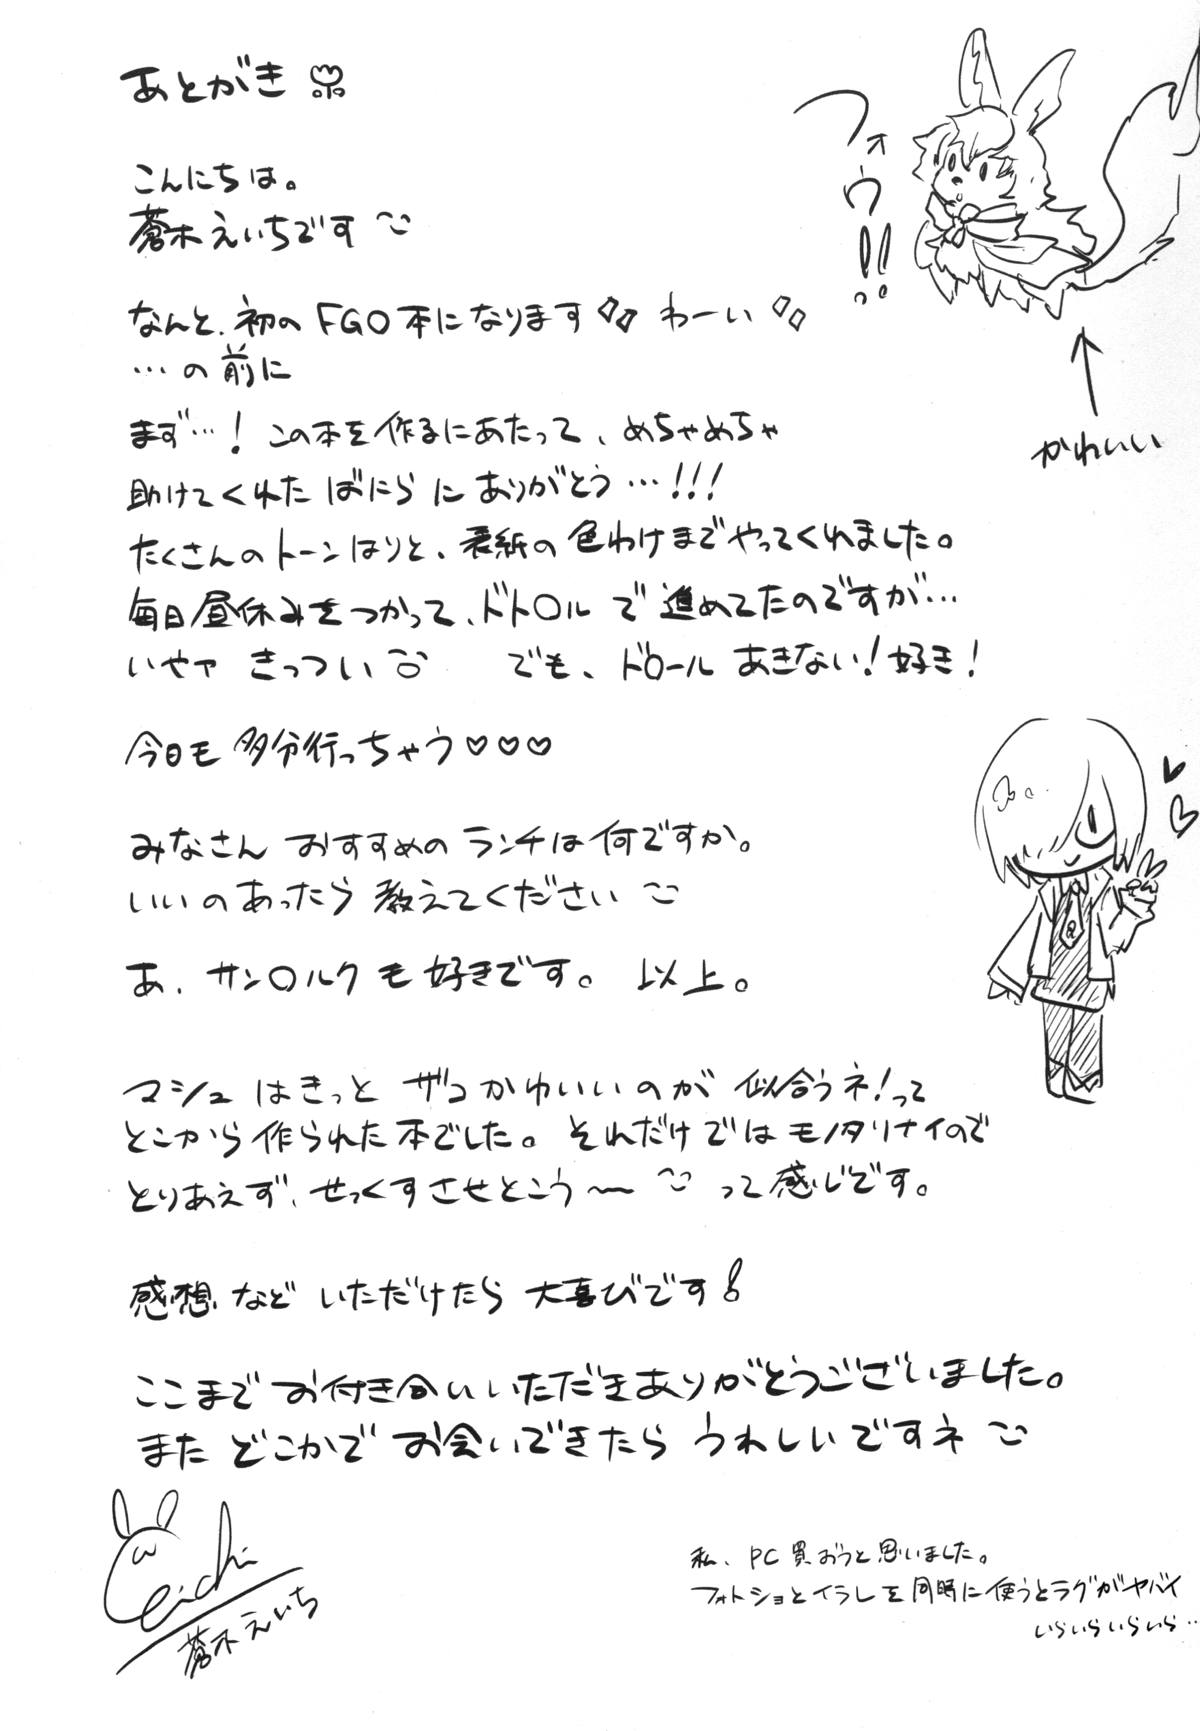 あとがき
フォウ!!
こんにちは。
蒼木えいちです
なんと、初のFGO本になります わーい
…の前に
まず…! この本を作るにあたって、めちゃめちゃ
かわいい
助けてくれた ばにら に ありがとう…!!!
たくさんのトーンはりと、表紙の色わけまでやってくれました。
毎日昼休みをつかって、ドト○ルで進めてたのですが…
いやァ きっつい でも、ド○ール あきない!好き!
今日も多分行っちゃう♡♡♡
みなさん おすすめの ランチは何ですか。
いいのあったら 教えてください
あ、サン○ルクも好きです。 以上。
マシュ はきっと ザコかわいいのが 似合うネ!って
とこから作られた本でした。それだけではモノタリナイので
とりあえず、せっくすさせとこう〜 って感じです。
感想など いただけたら 大喜びです!
ここまで お付き合いいただきありがとうございました。
また どこかで お会いできたら うれしいですネ
eichi
蒼木えいち
私、PC買おうと思いました。
フォトショとイラレを同時に使うとラグがヤバイ
いらいらいらいら…